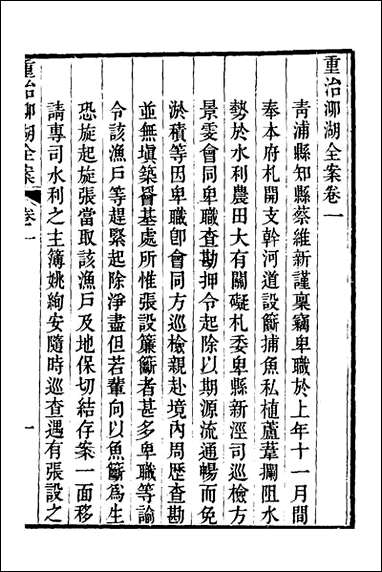 重治泖湖全案卷一
青浦縣知縣蔡維新謹稟竊卑職於上年十一月間
奉本府札開支幹河道設籪捕魚私植蘆葦攔阻水
勢於水利農田大有關礙札委卑縣新涇司巡檢方
景雯會同卑職查勘押令起除以期源流通暢而免
淤積等因卑職卽會同方巡檢親赴境內周歷查勘
並無塡築罾基處所惟張設簾籪者甚多卑職等諭
令該漁戸等趕緊起除淨盡但若輩向以魚籪為生
恐旋起旋張當取該漁戸及地保切結存案一面移
請專司水利之主簿姚絢安隨時巡查遇有張設之
重治泖湖全案
卷一
一